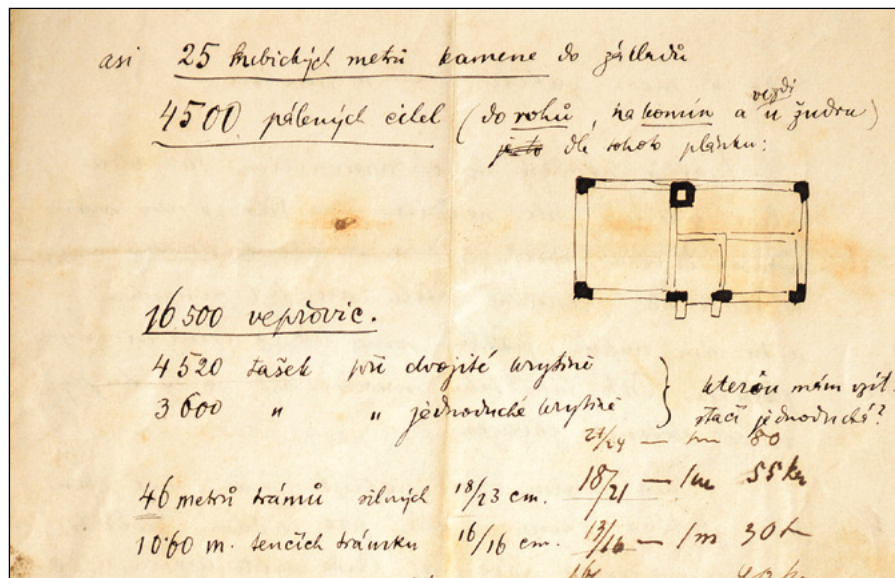 asi 25 kubických metrů kamene do základů
4500 pálených cihel (do rohů, na komín a vezdi u žudru)
je to dle tohoto plánku:
16 500 vepřovic.
4520 tašek při dvojité krytině
3600 " " jednoduché krytině } kterou mám vzít.
stačí jednoduchá?
27/24 — 1m 80
46 metrů trámů silných 18/23 cm. 18/21 — 1m 55 kr
10·60 m. tenčích trámků 16/16 cm. 13/16 — 1m 30 k